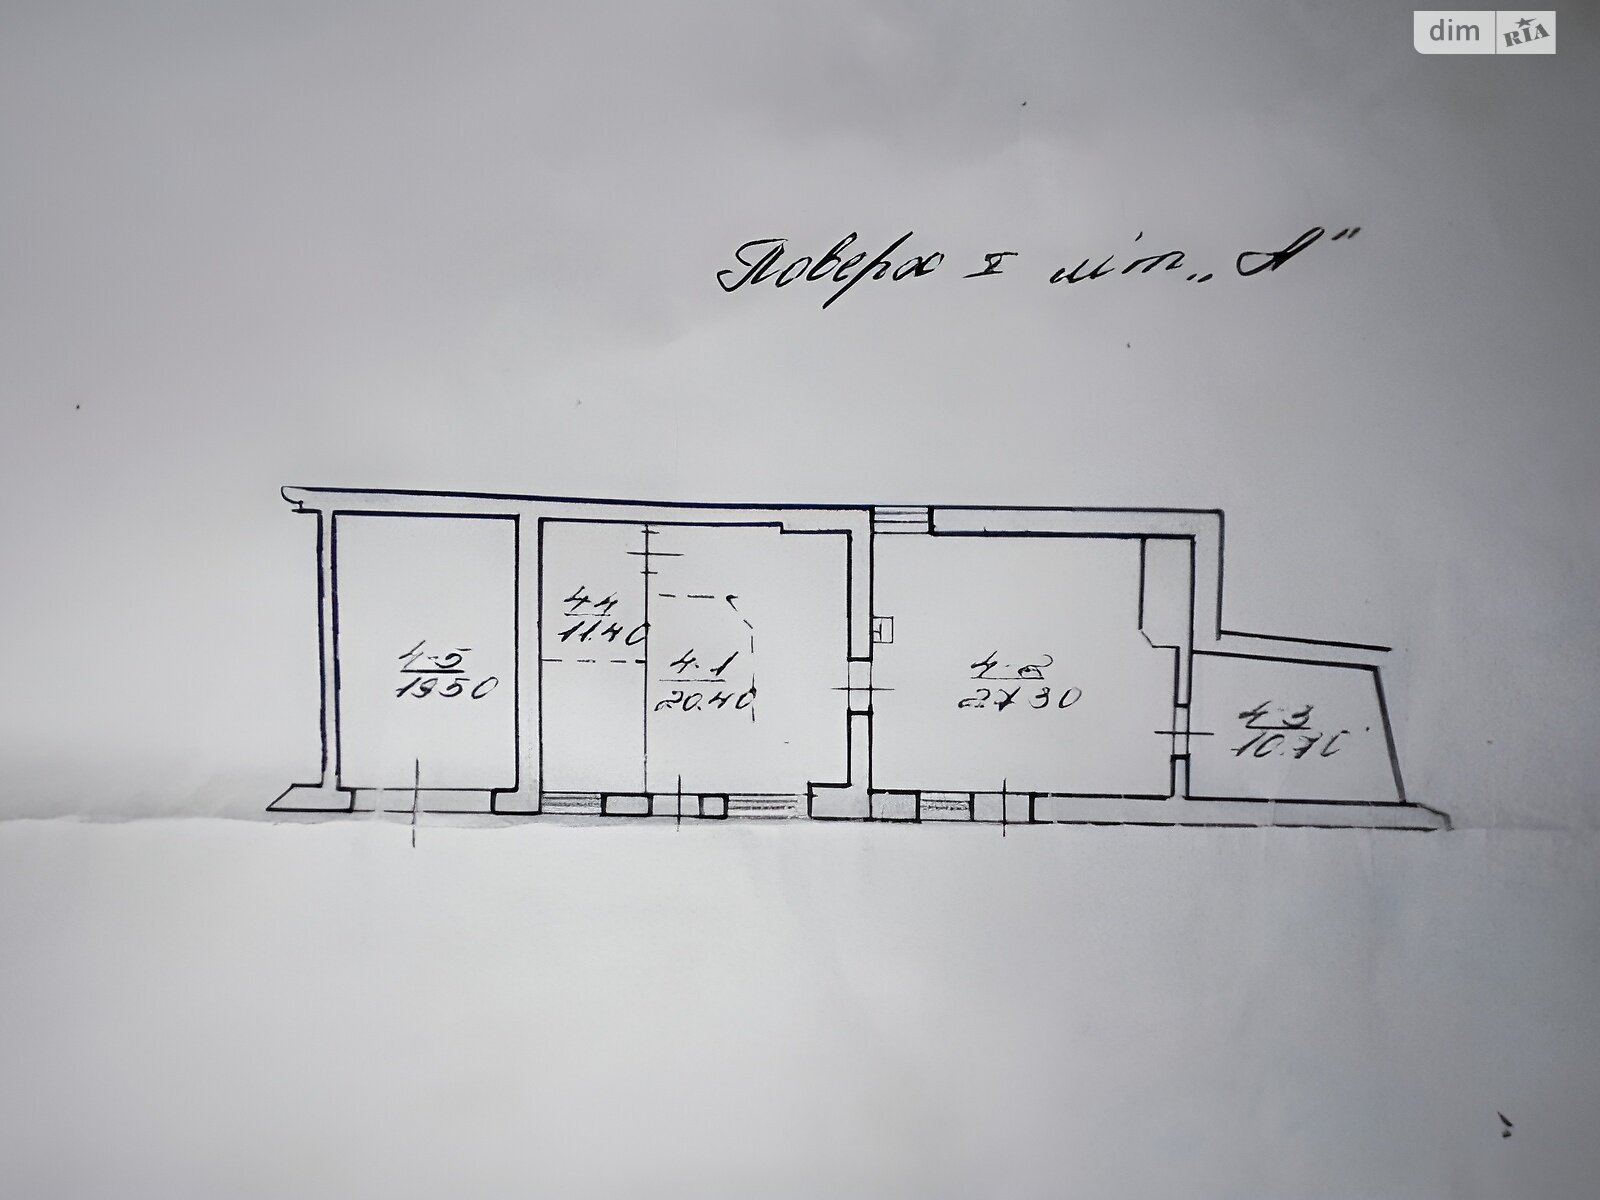 dim RIA
Поверх I літ „А"
4-4
11.40
4-5
19.50
4-1
20.40
4-2
27.30
4-3
10.70